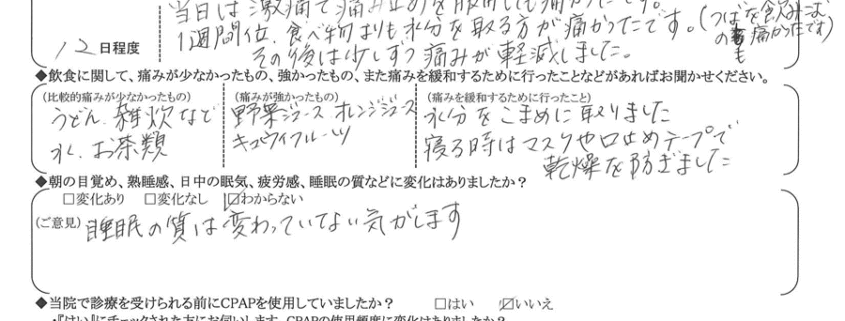 当日は激痛で痛み止めを服用しても痛かったです。
1週間位、食べ物よりも水分を取る方が痛かったです。(つばを飲みこむのも痛かったです)
12日程度
その後は少しずつ痛みが軽減しました。
◆飲食に関して、痛みが少なかったもの、強かったもの、また痛みを緩和するために行ったことなどがあればお聞かせください。
(比較的痛みが少なかったもの) (痛みが強かったもの) (痛みを緩和するために行ったこと)
うどん、雑炊など 野菜ジュース オレンジジュース 水分をこまめに取りました
水、お茶類 キュウイフルーツ 寝る時はマスクや口止めテープで
乾燥を防ぎました
◆朝の目覚め、熟睡感、日中の眠気、疲労感、睡眠の質などに変化はありましたか?
□変化あり □変化なし ☑わからない
(ご意見) 睡眠の質は変わっていてない気がします
◆当院で診療を受けられる前にCPAPを使用していましたか? □はい ☑いいえ
・『はい』にチェックされた方にお伺いします。CPAPの使用頻度に変化はありましたか?